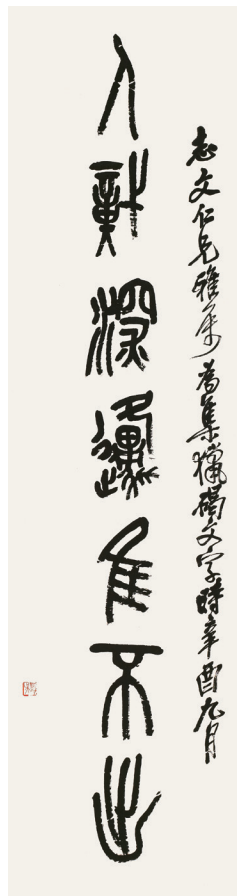 志文仁兄雅屬為集獵碣文字時辛酉九月
人深邍隹不出